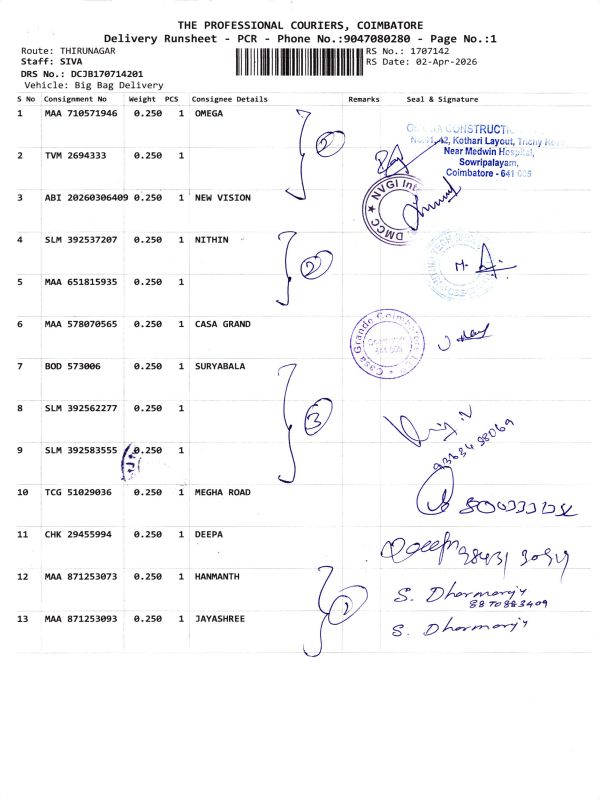 THE PROFESSIONAL COURIERS, COIMBATORE
Delivery Runsheet - PCR - Phone No.:9047080280 - Page No.:1
Route: THIRUNAGAR RS No.: 1707142
Staff: SIVA RS Date: 02-Apr-2026
DRS No.: DCJB170714201
Vehicle: Big Bag Delivery
S No Consignment No Weight PCS Consignee Details Remarks Seal & Signature
1 MAA 710571946 0.250 1 OMEGA
2
CONSTRUCTI
42, Kothari Layout, Trichy Road
Near Medwin Hospital,
Sowripalayam,
Coimbatore - 641 005
2 TVM 2694333 0.250 1
3 ABI 20260306409 0.250 1 NEW VISION
NVGI DMCC
4 SLM 392537207 0.250 1 NITHIN
2
M.
5 MAA 651815935 0.250 1
6 MAA 578070565 1 0.250 CASA GRAND
Casa Grande Coimbatore
7 BOD 573006 0.250 1 SURYABALA
8 SLM 392562277 0.250 1
3
9 SLM 392583555 0.250 1
93634 38069
10 TCG 51029036 0.250 1 MEGHA ROAD
11 CHK 29455994 0.250 1 DEEPA
Deepa
12 MAA 871253073 0.250 1 HANMANTH
S. Dharmaraj
8870883409
13 MAA 871253093 0.250 1 JAYASHREE
S. Dharmaraj